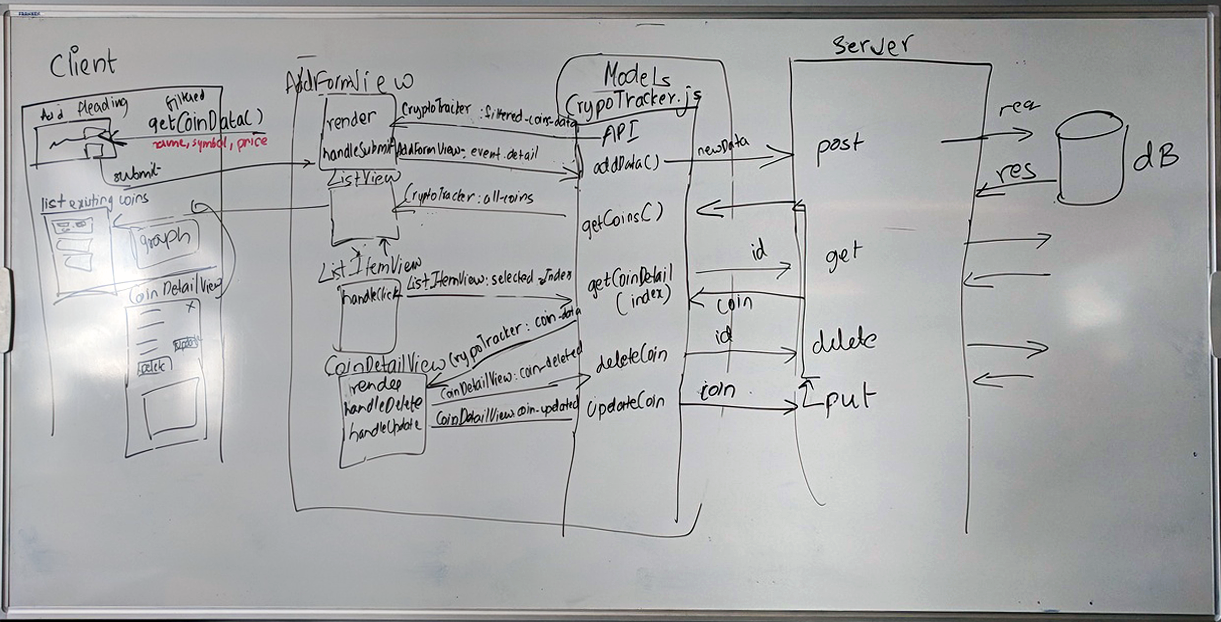 Client
Add Heading
filtered
getCoinData()
name, symbol, price
submit
list existing coins
graph
Coin DetailView
X
update
Delete
AddFormView
render
handleSubmit
CryptoTracker: filtered-coin-data
AddFormView: event.detail
ListView
CryptoTracker: all-coins
ListItemView
handleClick
ListItemView: selected-index
CoinDetailView
render
handleDelete
handleUpdate
CrypoTracker: coin-data
CoinDetailView: coin-deleted
CoinDetailView: coin-updated
Models
CrypoTracker.js
API
addData()
getCoins()
getCoinDetail
(index)
deleteCoin
UpdateCoin
newData
id
coin
id
coin
Server
post
get
delete
put
req
res
dB